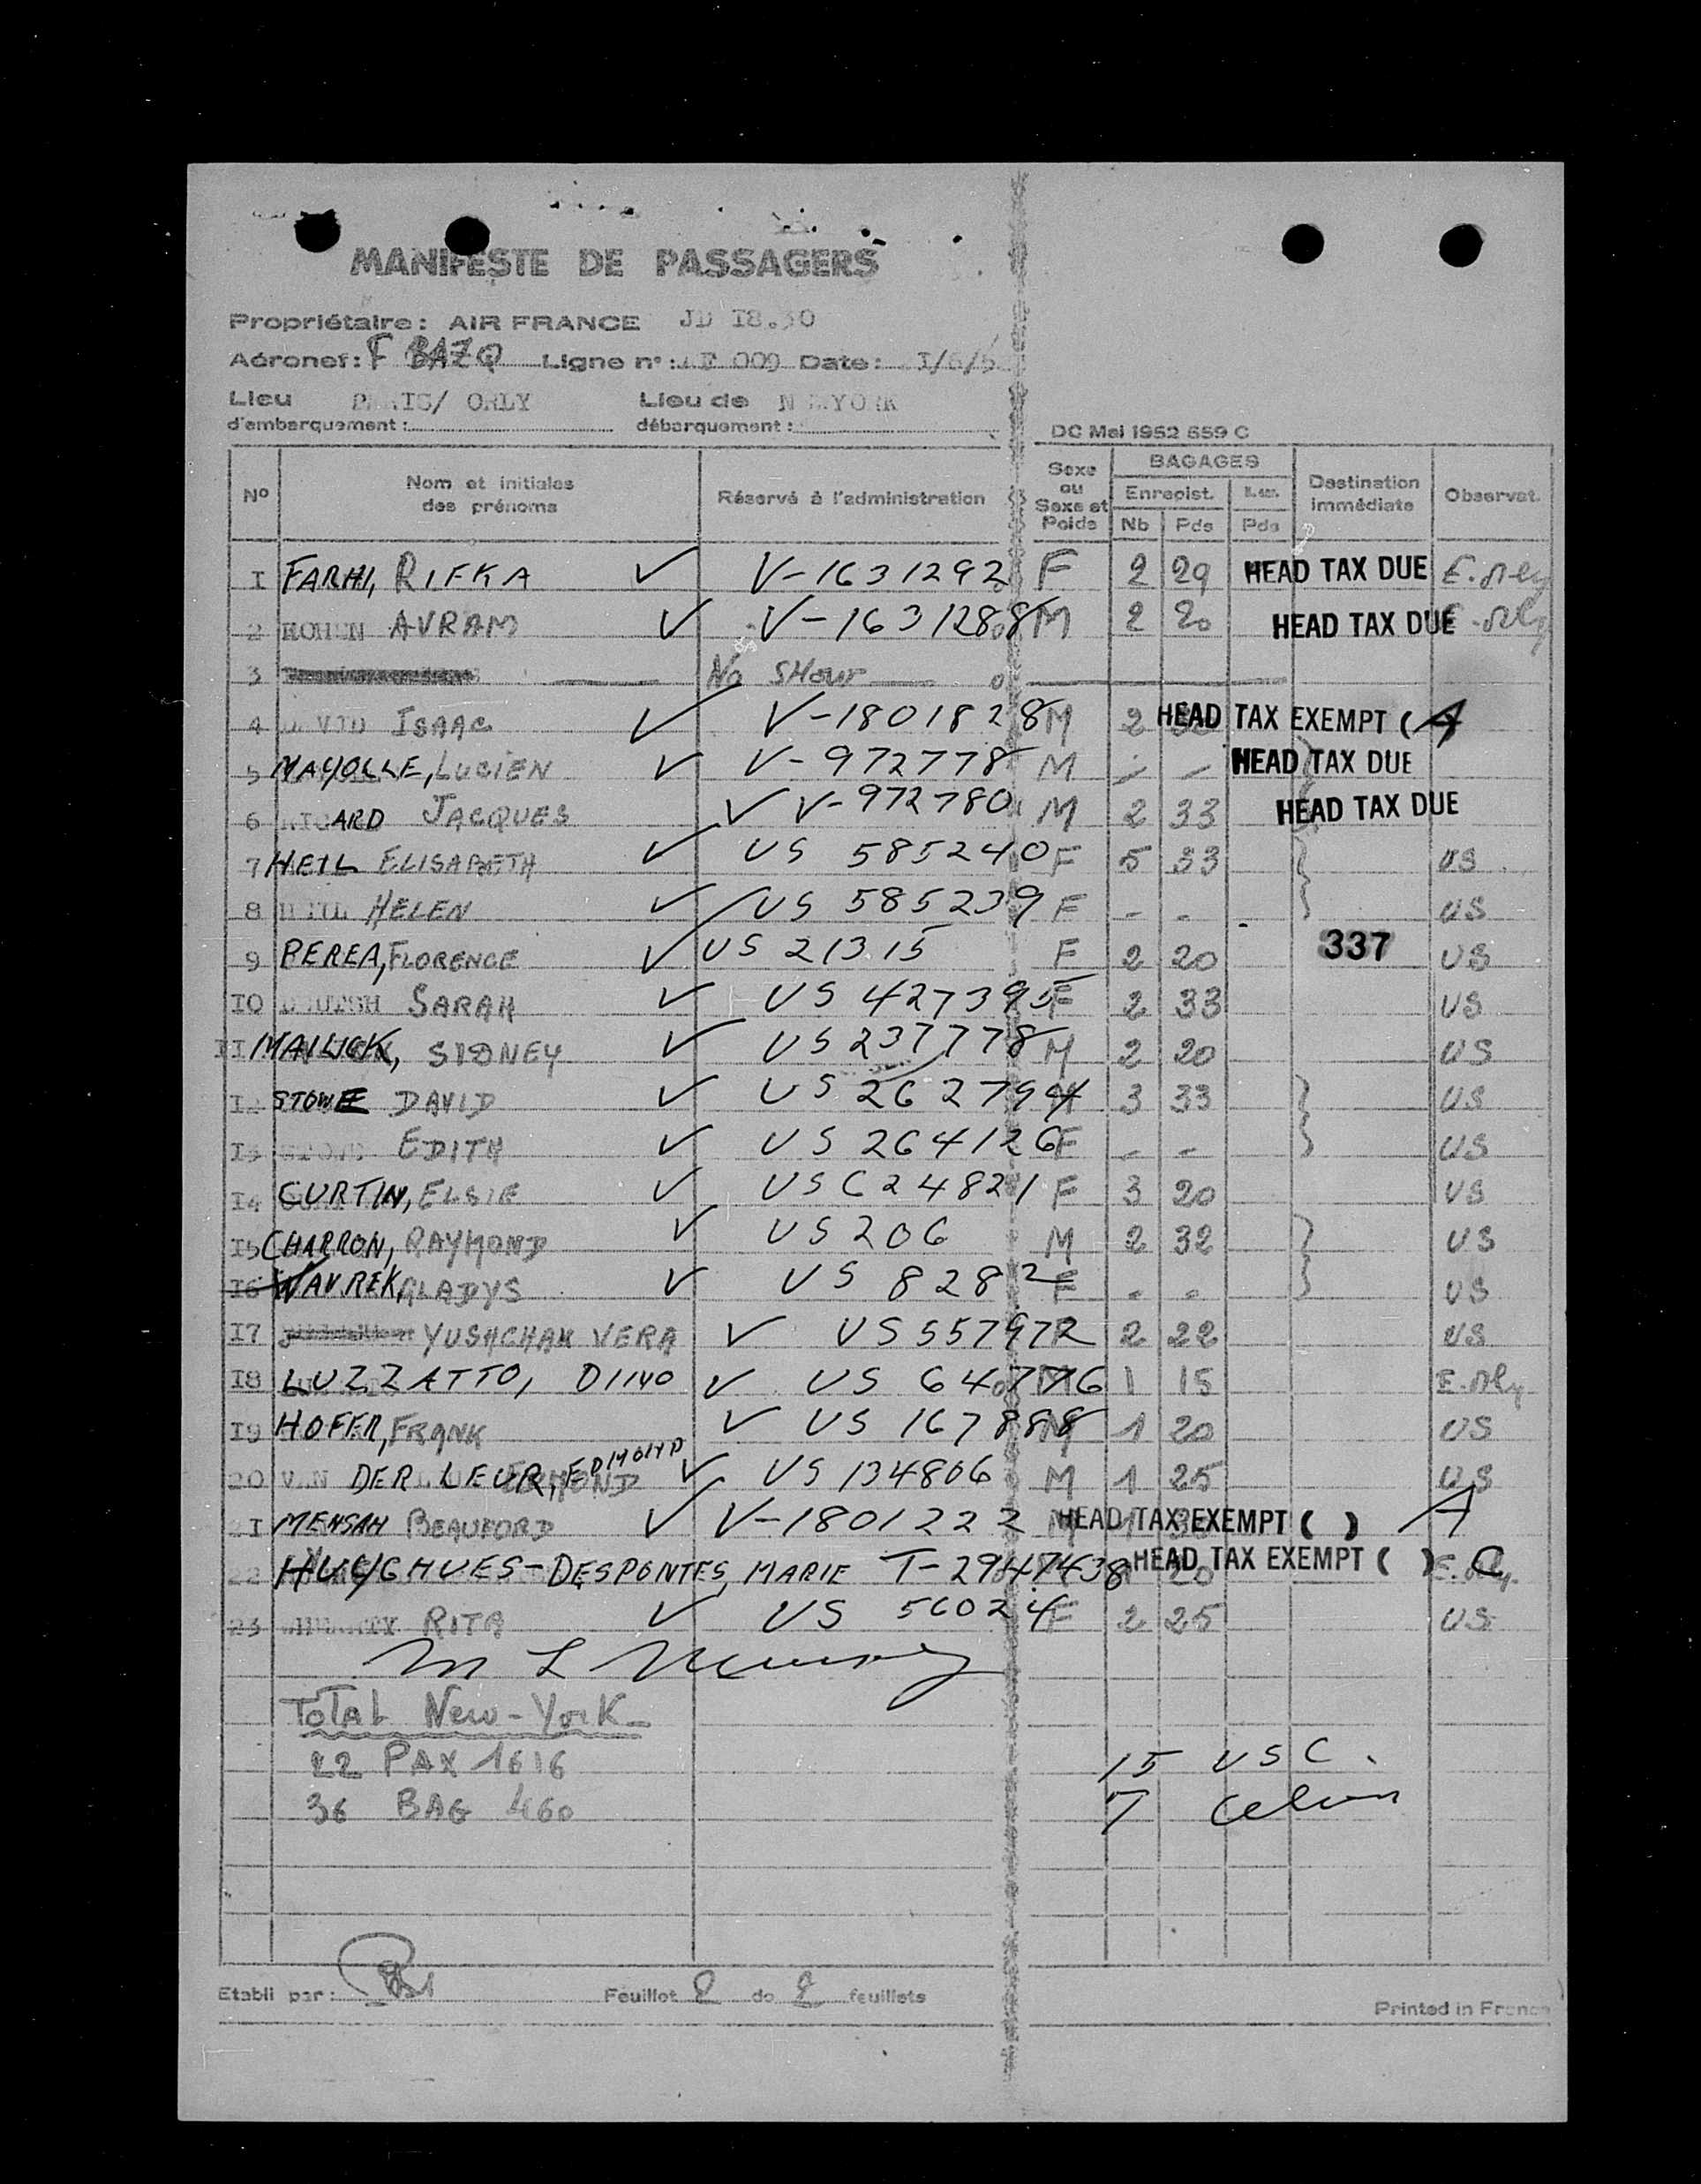 MANIFESTE DE PASSAGERS
Propriétaire : AIR FRANCE JD I8.30
Aéronef : F BAZQ Ligne n° : AF 009 Date : I/6/5
Lieu d'embarquement : PARIS/ ORLY Lieu de débarquement : NEWYORK
DC Mai 1952 559 C
N° Nom et initiales des prénoms Réservé à l'administration Sexe ou Sexe et Poids BAGAGES Enregist. Nb Pds Pds Destination immédiate Observat.
I FARHI, RIFKA ✓ V-1631292 F 2 29 HEAD TAX DUE
2 AVRAM ✓ V-1631288 M 2 20 HEAD TAX DUE
3 No SHow
4 DAVID ISAAC ✓ V-1801828 M 2 HEAD TAX EXEMPT ( A
5 MAYOLLE, LUCIEN ✓ V-972778 M - - HEAD TAX DUE
6 ARD JACQUES ✓ V-972780 M 2 33 HEAD TAX DUE
7 HEIL ELISABETH ✓ US 585240 F 5 33 US
8 HEIL HELEN ✓ US 585239 F - - US
9 PEREA, FLORENCE ✓ US 21315 F 2 20 337 US
I0 SARAH ✓ US 427395 F 2 33 US
II MAILICK, SIDNEY ✓ US 237778 M 2 20 US
I2 STOWE DAVID ✓ US 262794 M 3 33 US
I3 EDITH ✓ US 264126 F - - US
I4 CURTIN, ELSIE ✓ US C24821 F 3 20 US
I5 CHARRON, RAYMOND ✓ US 206 M 2 32 US
I6 WAVREK, GLADYS ✓ US 8282 F - - US
I7 YUSHCHAK VERA ✓ US 557972 F 2 22 US
I8 LUZZATTO, DINO ✓ US 64776 M 1 15
I9 HOFER, FRANK ✓ US 167888 M 1 20 US
20 VAN DER LEUR, EDMOND ✓ US 134806 M 1 25 US
2I MENSAH BEAUFORD ✓ V-1801222 HEAD TAX EXEMPT ( ) A
22 HUYGHUES-DESPONTES, MARIE T-2947438 HEAD TAX EXEMPT ( ) C
23 RITA ✓ US 56024 F 2 25 US
Total New-York
22 PAX 1616
36 BAG 460
15 USC.
7 alien
Etabli par : Feuillet 2 de 2 feuillets
Printed in France